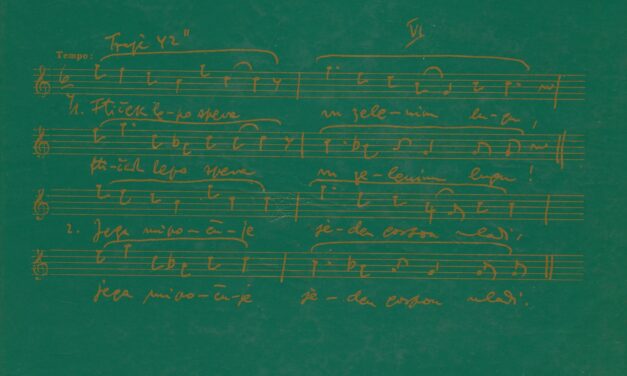 Traje 42" VI
Tempo:
1. Ftiček le-po speva m zele-nim lu-gu,
fti-ček lepo speva m ze-lenim lugu!
2. Jega mino-ču-je je-den gospon mladi,
jega mino-ču-je je-den gospon mladi.